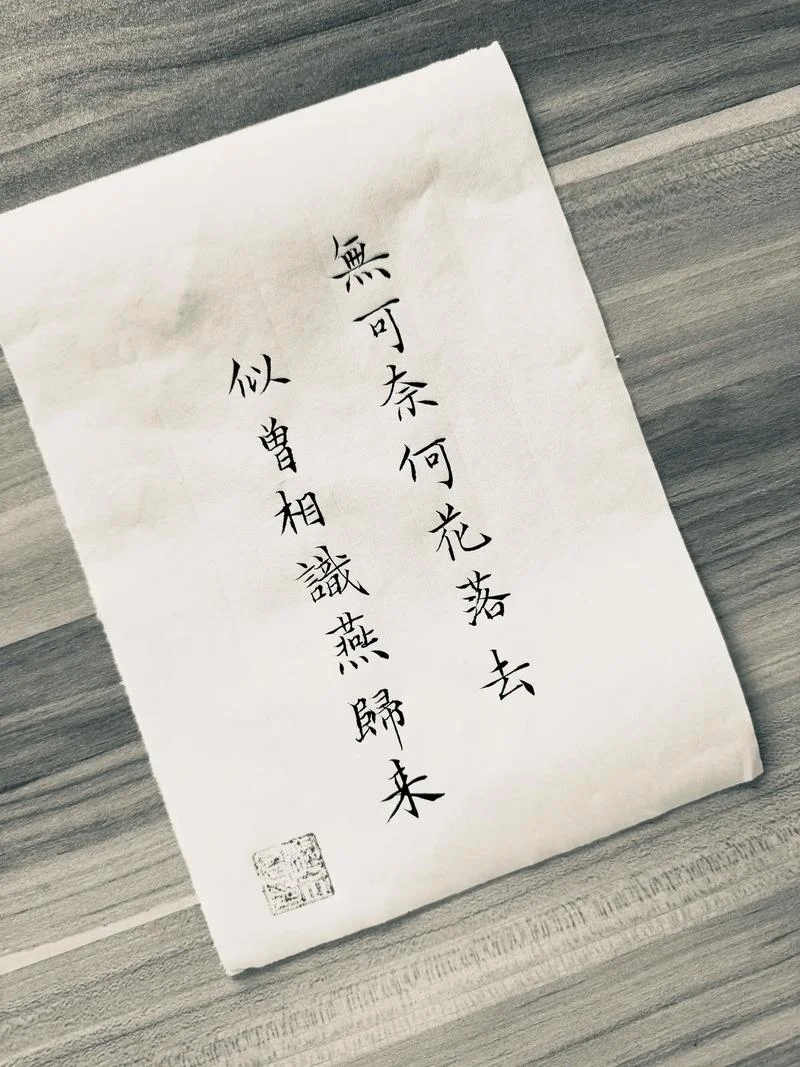 無可奈何花落去
似曽相識燕歸来